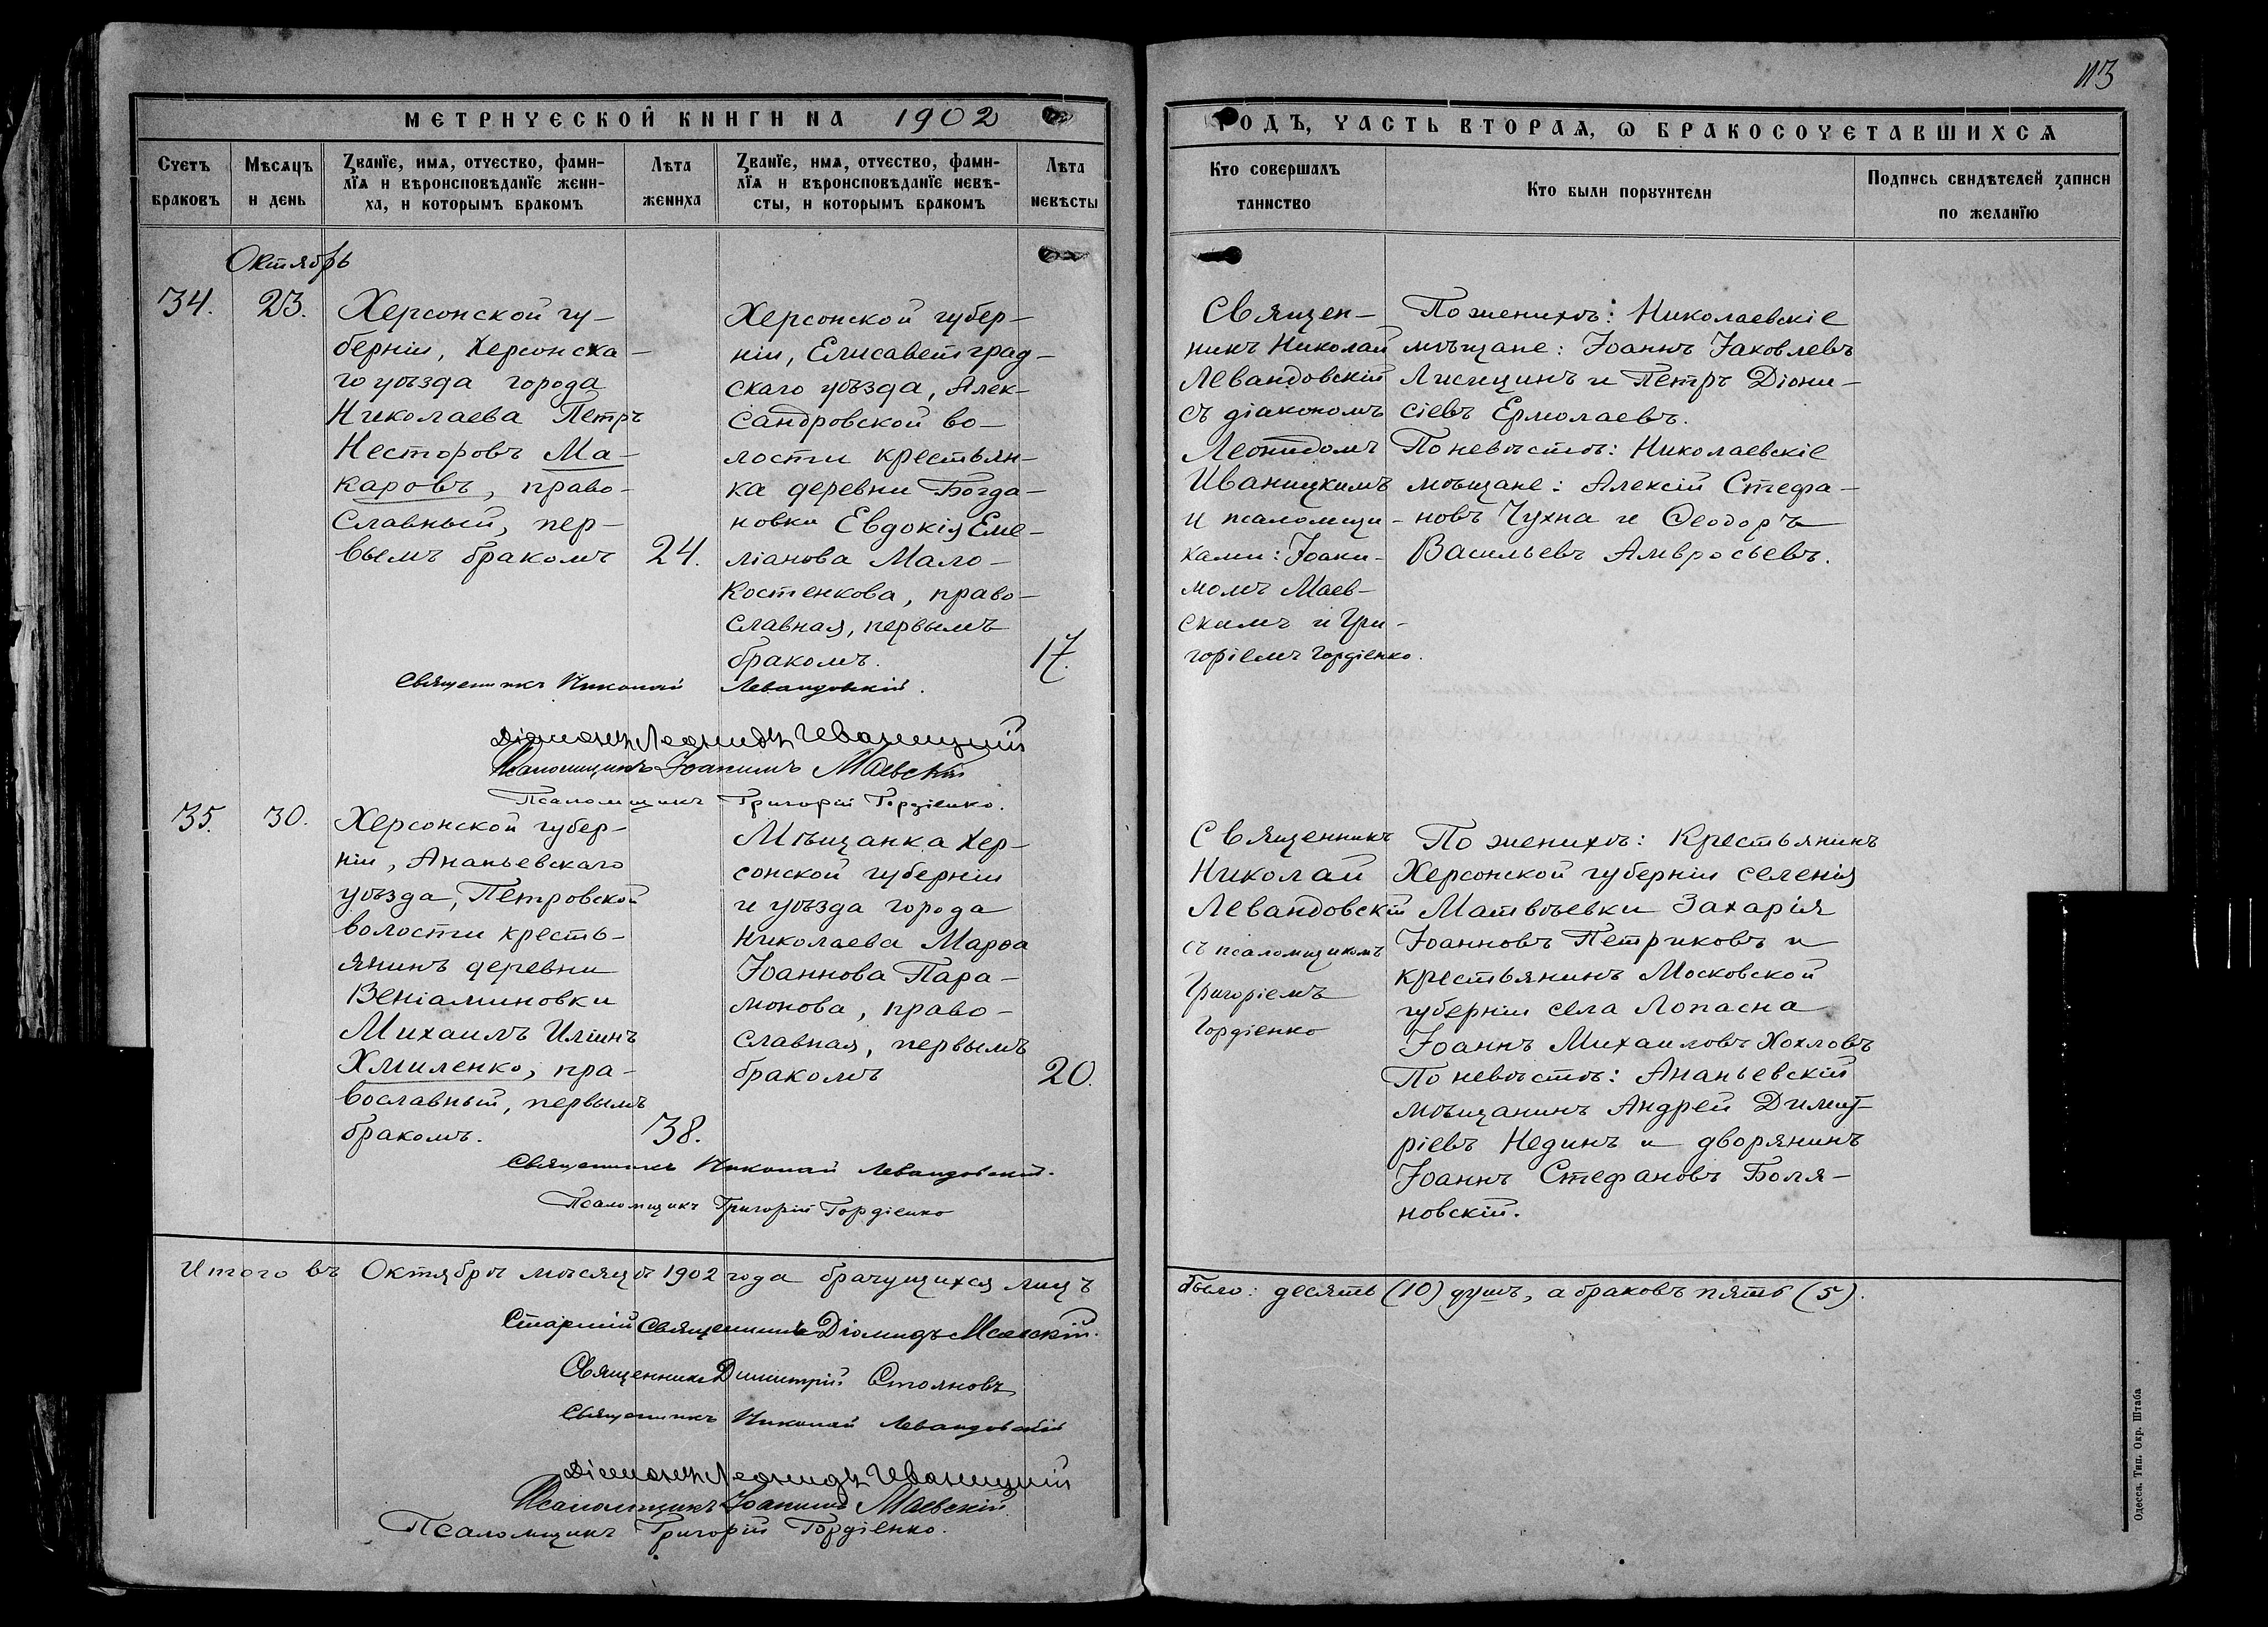 113
МЕТРИЧЕСКОЙ КНИГИ НА 1902
ГОДЪ, ЧАСТЬ ВТОРАѦ, Ѡ БРАКОСОЧЕТАВШИХСѦ
Счетъ
браковъ
Мѣсѧцъ
и день
Званїе, имѧ, отчество, фами-
лїѧ и вѣроисповѣданїе жени-
ха, и которымъ бракомъ
Лѣта
жениха
Званїе, имѧ, отчество, фами-
лїѧ и вѣроисповѣданїе невѣ-
сты, и которымъ бракомъ
Лѣта
невѣсты
Кто совершалъ
таинство
Кто были порꙋчители
Подпись свидѣтелей записи
по желанїю
Октябрь
34.
23.
Херсонской гу-
берніи, Херсонска-
го уѣзда города
Николаева Петръ
Несторовъ Ма-
каровъ, право-
славный, пер-
вымъ бракомъ
24.
Херсонской губер-
ніи, Елисаветград-
скаго уѣзда, Алек-
сандровской во-
лости крестьян-
ка деревни Богда-
новки Евдокія Еме-
ліанова Мало-
костенкова, право-
славная, первымъ
бракомъ.
17.
Священ-
никъ Николай
Левандовскій
съ діакономъ
Леонидомъ
Иваницкимъ
и псаломщи-
ками: Іоаки-
момъ Маев-
скимъ и Гри-
горіемъ Гордіенко.
По женихѣ: Николаевскіе
мѣщане: Іоаннъ Іаковлевъ
Лисицинъ и Петръ Діони-
сіевъ Ермолаевъ.
По невѣстѣ: Николаевскіе
мѣщане: Алексій Стефа-
новъ Чухна и Ѳеодоръ
Васильевъ Амвросьевъ.
Священникъ Николай Левандовскій.
Діаконъ Леонидъ Иваницкій
Псаломщикъ Іоакимъ Маевскій
Псаломщикъ Григорій Гордіенко.
35.
30.
Херсонской губер-
ніи, Ананьевскаго
уѣзда, Петровской
волости кресть-
янинъ деревни
Веніаминовки
Михаилъ Иліинъ
Хмиленко, пра-
вославный, первымъ
бракомъ.
38.
Мѣщанка Хер-
сонской губерніи
и уѣзда города
Николаева Марѳа
Іоаннова Пара-
монова, право-
славная, первымъ
бракомъ
20.
Священникъ
Николай
Левандовскій
съ псаломщикомъ
Григоріемъ
Гордіенко
По женихѣ: Крестьянинъ
Херсонской губерніи селенія
Матвѣевки Захарія
Іоанновъ Петриковъ и
крестьянинъ Московской
губерніи села Лопасна
Іоаннъ Михаиловъ Хохловъ
По невѣстѣ: Ананьевскій
мѣщанинъ Андрей Димит-
ріевъ Нединъ и дворянинъ
Іоаннъ Стефановъ Боля-
новскій.
Священникъ Николай Левандовскій.
Псаломщикъ Григорій Гордіенко
Итого въ Октябрѣ мѣсяцѣ 1902 года брачущихся лицъ
было: десять (10) душъ, а браковъ пять (5).
Старшій Священникъ Діомидъ Маевскій.
Священникъ Димитрій Стояновъ
Священникъ Николай Левандовскій
Діаконъ Леонидъ Иваницкій
Псаломщикъ Іоакимъ Маевскій
Псаломщикъ Григорій Гордіенко.
Одесса. Тип. Окр. Штаба